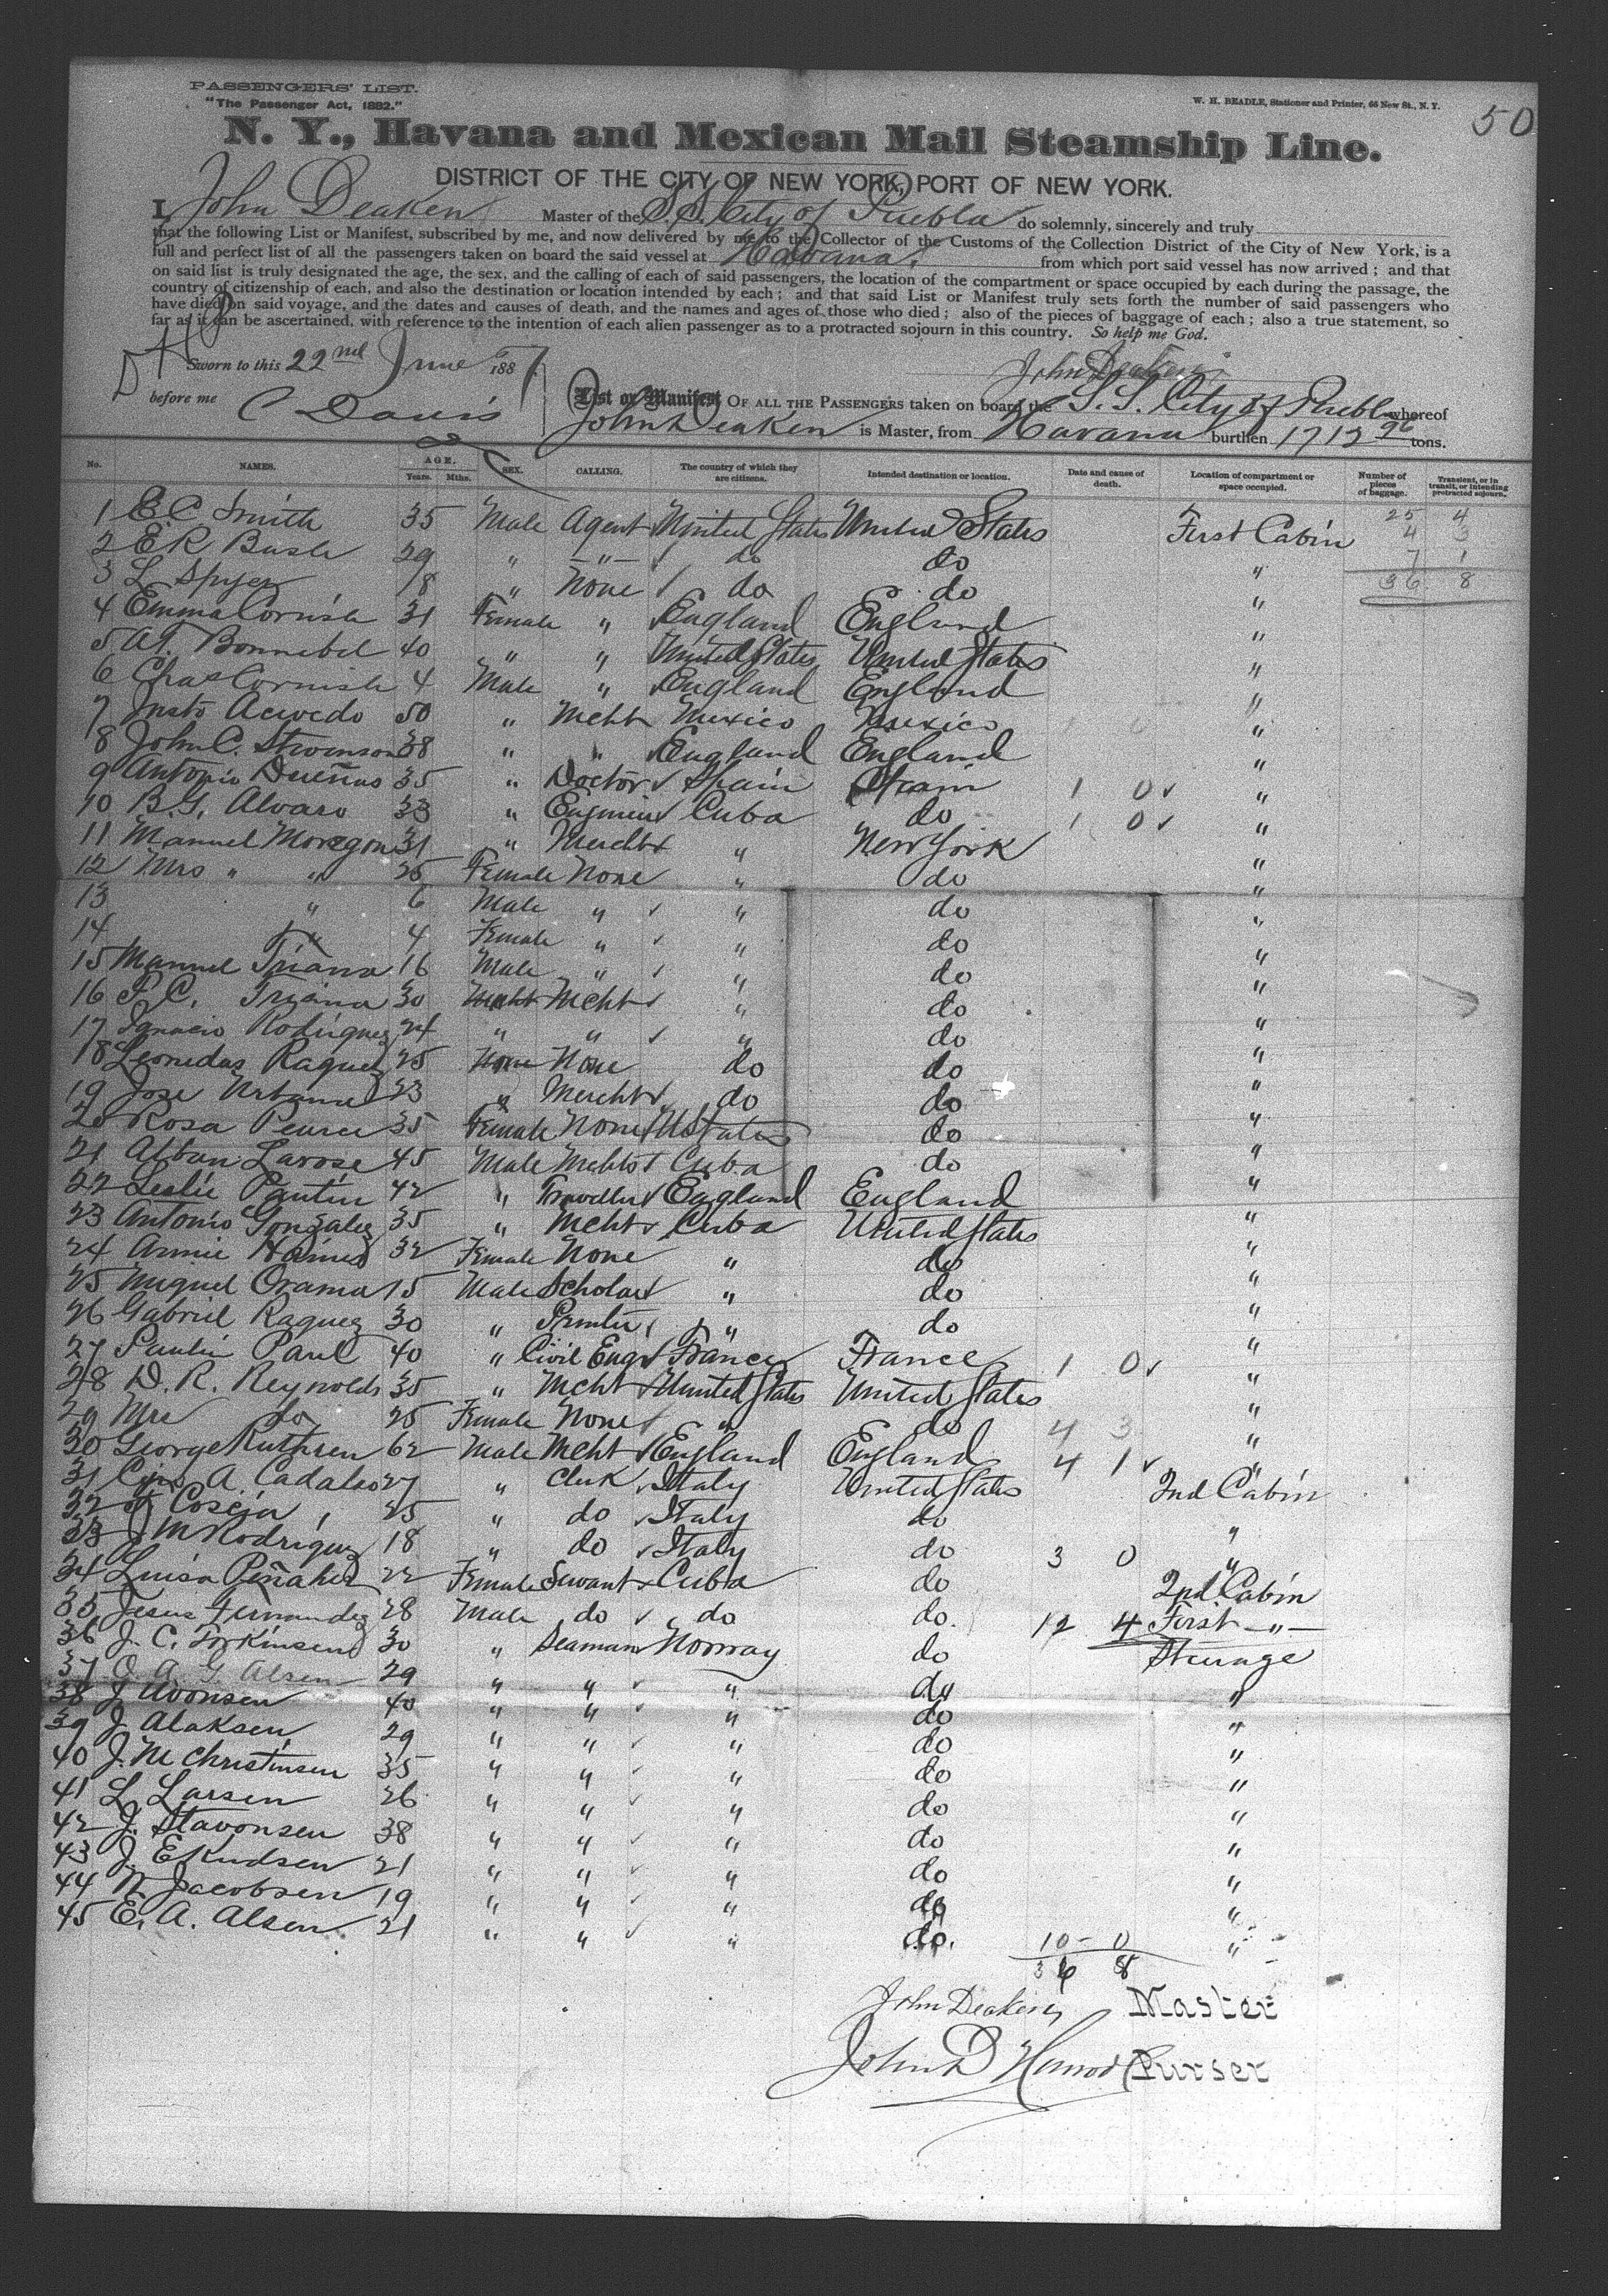 PASSENGERS' LIST.
"The Passenger Act, 1882."
W. H. BEADLE, Stationer and Printer, 66 New St., N. Y.
50
N. Y., Havana and Mexican Mail Steamship Line.
DISTRICT OF THE CITY OF NEW YORK, PORT OF NEW YORK.
I, John Deaken Master of the S.S. City of Puebla do solemnly, sincerely and truly
that the following List or Manifest, subscribed by me, and now delivered by me to the Collector of the Customs of the Collection District of the City of New York, is a
full and perfect list of all the passengers taken on board the said vessel at Havana, from which port said vessel has now arrived ; and that
on said list is truly designated the age, the sex, and the calling of each of said passengers, the location of the compartment or space occupied by each during the passage, the
country of citizenship of each, and also the destination or location intended by each ; and that said List or Manifest truly sets forth the number of said passengers who
have died on said voyage, and the dates and causes of death, and the names and ages of those who died ; also of the pieces of baggage of each ; also a true statement, so
far as it can be ascertained, with reference to the intention of each alien passenger as to a protracted sojourn in this country. So help me God.
Sworn to this 22nd June 188
John Deaken
before me C Davis
List or Manifest OF ALL THE PASSENGERS taken on board the S.S. City of Puebla whereof
John Deaken is Master, from Havana burthen 1712 26 tons.
No. NAMES. AGE. Years. Mths. SEX. CALLING. The country of which they are citizens. Intended destination or location. Date and cause of death. Location of compartment or space occupied. Number of pieces of baggage. Transient, or in transit, or intending protracted sojourn.
1 E C Smith 35 Male Agent United States United States First Cabin 25 4
2 E R Bush 29 " " do do " 4 3
3 L Spyer 18 " None do do " 7 1
36 8
4 Emma Cornish 31 Female " England England "
5 At. Bonnebel 40 " " United States United States "
6 Chas Cornish 4 Male " England England "
7 Justo Acevedo 50 " Mcht Mexico Mexico "
8 John C. Stevenson 38 " " England England "
9 Antonio Dueñas 35 " Doctor Spain Spain 1 0 "
10 B. G. Alvaro 33 " Engineer Cuba do 1 0 "
11 Manuel Moregon 31 " Mercht " New York "
12 Mrs " " 25 Female None " do "
13 " 6 Male " " do "
14 " 4 Female " " do "
15 Manuel Triana 16 Male " " do "
16 P. C. Triana 30 Mcht " do "
17 Ignacio Rodriguez 24 " " " do "
18 Leonidas Raquez 25 None do do "
19 Jose Urbana 23 " Mercht do do "
20 Rosa Pearce 35 Female None U States do "
21 Alban Larose 45 Male Mcht Cuba do "
22 Leslie Pantin 42 " Traveller England England "
23 Antonio Gonzalez 35 " Mcht Cuba United States "
24 Annie 32 Female None " do "
25 Miguel Orama 15 Male Scholar " do "
26 Gabriel Raquez 30 " Printer " do "
27 Paulin Paul 40 " Civil Engr France France 1 0 "
28 D. R. Reynolds 35 " Mcht United States United States "
29 Mrs do 25 Female None " do 4 3 "
30 George Ruthven 62 Male Mcht England England 4 1 "
31 A. Cadalso 27 " Clerk Italy United States 2nd Cabin
32 Coscja 25 " do Italy do "
33 J M Rodriguez 18 " do Italy do 3 0 "
34 Luisa Peñalver 22 Female Servant Cuba do 2nd Cabin
35 Jesus Fernandez 28 Male do do do. 12 4 First "
36 J. C. Torkinsend 30 " Seaman Norway do Steerage
37 O. A. G. Alsen 29 " " " do "
38 J Avonsen 40 " " " do "
39 J. Alaksen 29 " " " do "
40 J. M Christinsen 35 " " " do "
41 L Larsen 26 " " " do "
42 J. Stavonsen 38 " " " do "
43 J. Ekudsen 21 " " " do "
44 N Jacobsen 19 " " " do "
45 E. A. Alsen 21 " " " do. 10 - 0 "
36 8
John Deaken Master
John D Purser